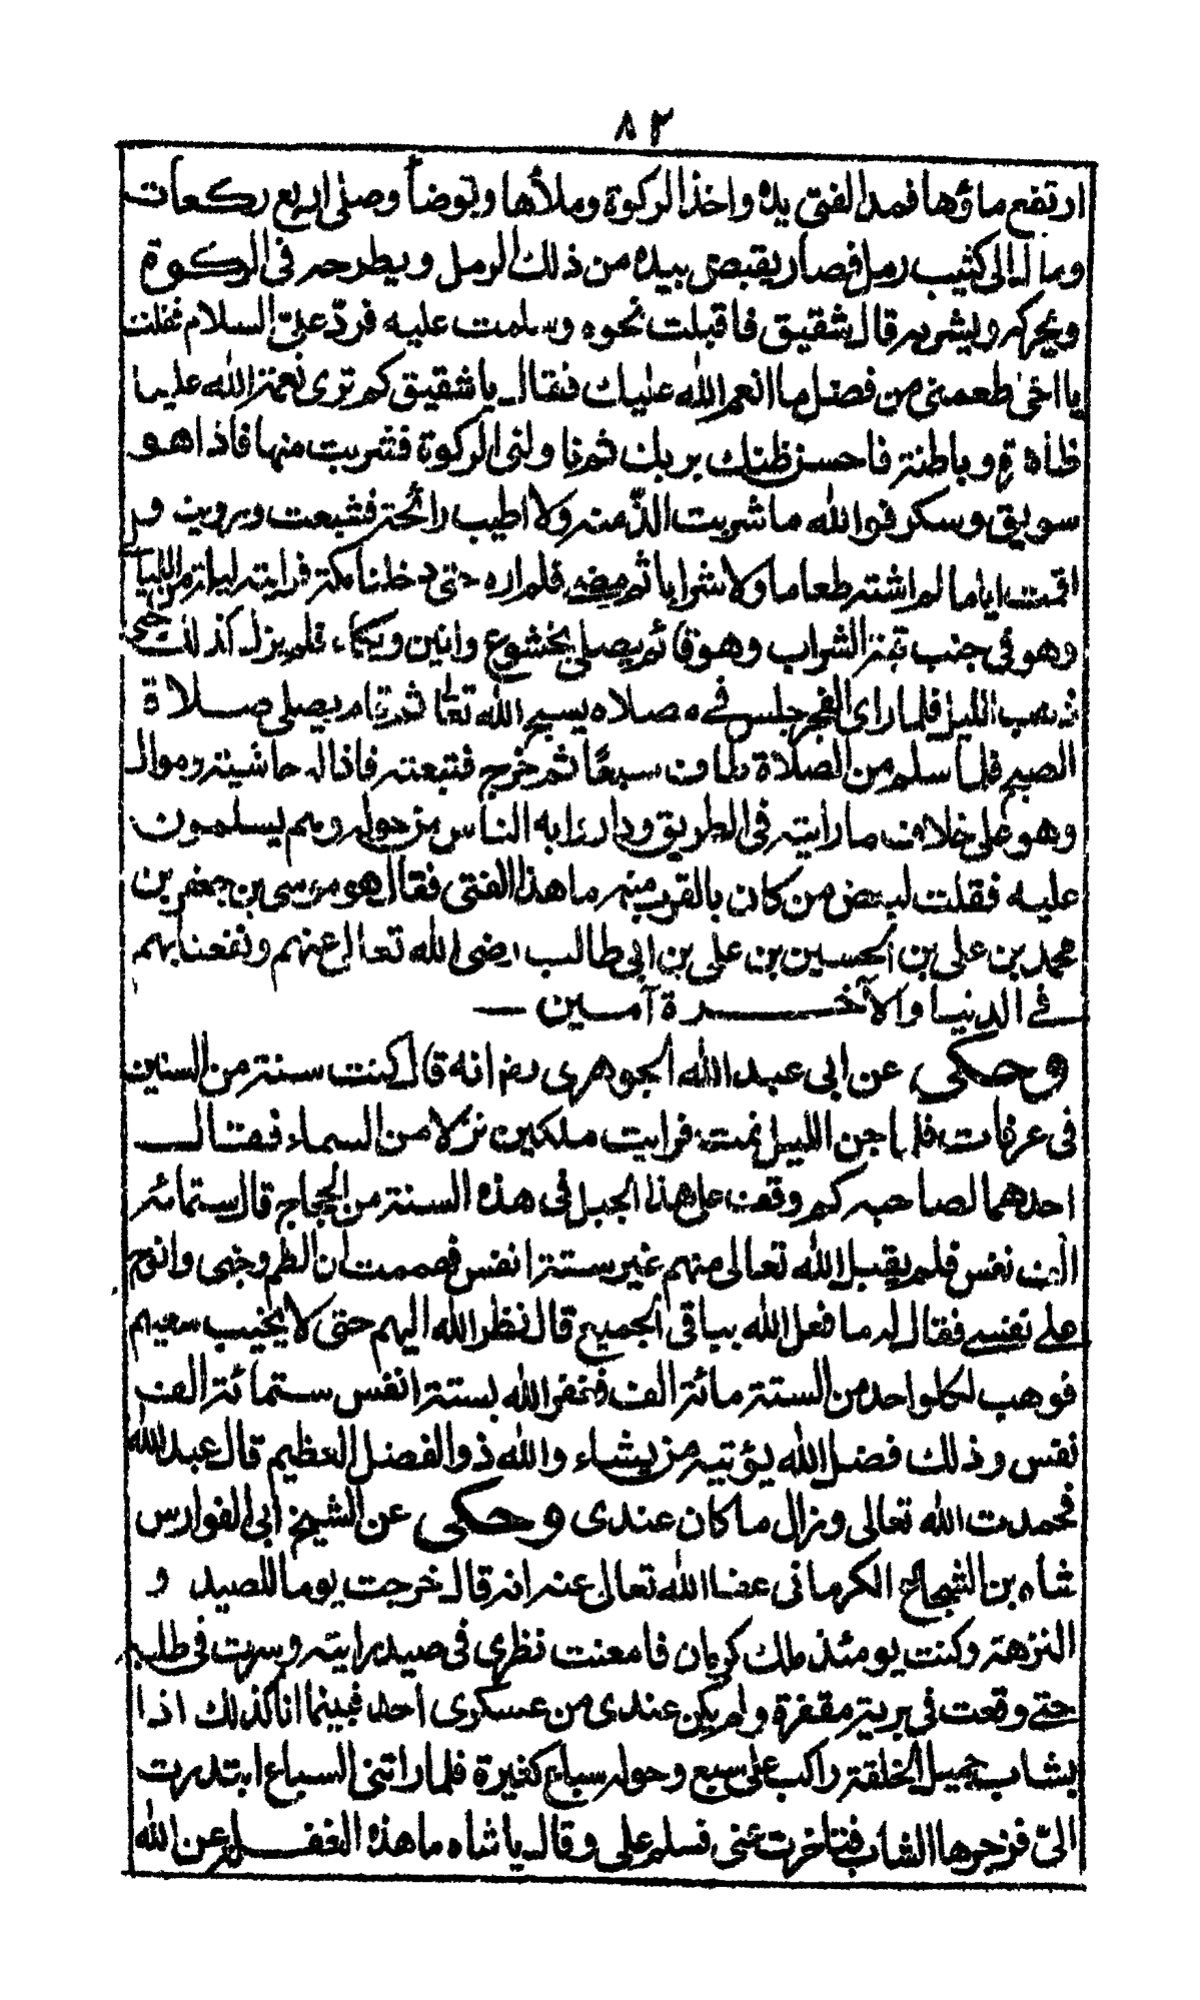 ٨٢
ارتفع ماؤها فمد الفتى يده واخذ الركوة وملأها وتوضأ وصلى اربع ركعات
ومال الى كثيب رمل فصار يقبض بيده من ذلك الرمل ويطرحه فى الركوة
ويحركه ويشربه قال شقيق فاقبلت نحوه وسلمت عليه فردّ علىّ السلام فقلت
يا اخى اطعمنى من فضل ما انعم الله عليك فقال يا شقيق كم ترى نعمة الله علينا
ظاهرة وباطنة فاحسن ظنك بربك ثم ناولنى الركوة فشربت منها فاذا هو
سويق وسكر فوالله ما شربت الذّ منه ولا اطيب رائحة فشبعت ورويت و
اقمت اياما لم اشته طعاما ولا شرابا ثم مضى فلم اره حتى دخلنا مكة فرايته ليلة من الليالى
وهو فى جنب قبة الشراب وهو قائم يصلى بخشوع وانين وبكاء، فلم يزل كذلك حتى
ذهب الليل فلما راى الفجر جلس فے مصلاه يسبح الله تعالى ثم قام يصلى صلاة
الصبح فلما سلم من الصلاة طاف سبعًا ثم خرج فتبعته فاذا له حاشية وموال
وهو على خلاف ما رايته فى الطريق ودار به الناس من حوله وهم يسلمون
عليه فقلت لبعض من كان بالقرب منه ما هذا الفتى فقال هو موسى بن جعفر بن
محمد بن على بن الحسين بن على بن ابى طالب رضى الله تعالى عنهم ونفعنا بهم
فے الدنيا والآخرة آمين —
وحكى عن ابى عبد الله الجوهرى رض انه قال كنت سنة من السنين
فى عرفات فلما جن الليل نمت، فرايت ملكين نزلا من السماء فقال
احدهما لصاحبه كم وقف على هذا الجبل فى هذه السنة من الحجاج قال ستمائة
الف نفس فلم يقبل الله تعالى منهم غير ستة انفس فهممت ان الطم وجهى وانوح
علے نفسے فقال له ما فعل الله بباقى الجميع قال نظر الله اليهم حتى لا يخيب سعيهم
فوهب لكل واحد من الستة مائة الف فغفر الله بستة انفس ستمائة الف
نفس وذلك فضل الله يؤتيه من يشاء والله ذو الفضل العظيم قال عبد الله
فحمدت الله تعالى وزال ما كان عندى وحكى عن الشيخ ابى الفوارس
شاه بن الشجاع الكرمانى عفا الله تعالى عنه انه قال خرجت يوما للصيد و
النزهة وكنت يومئذ ملك كرمان فامعنت نظرى فى صيد رايته وسرت فى طلبه
حتے وقعت فى برية مقفرة ولم يكن عندى من عسكرى احد فبينما انا كذلك اذا
بشاب جميل الخلقة راكب على سبع وحوله سباع كثيرة فلما راتنى السباع ابتدرت
الىّ فزجرها الشاب فتاخرت عنى فسلم على وقال يا شاه ما هذه الغفلة عن الله